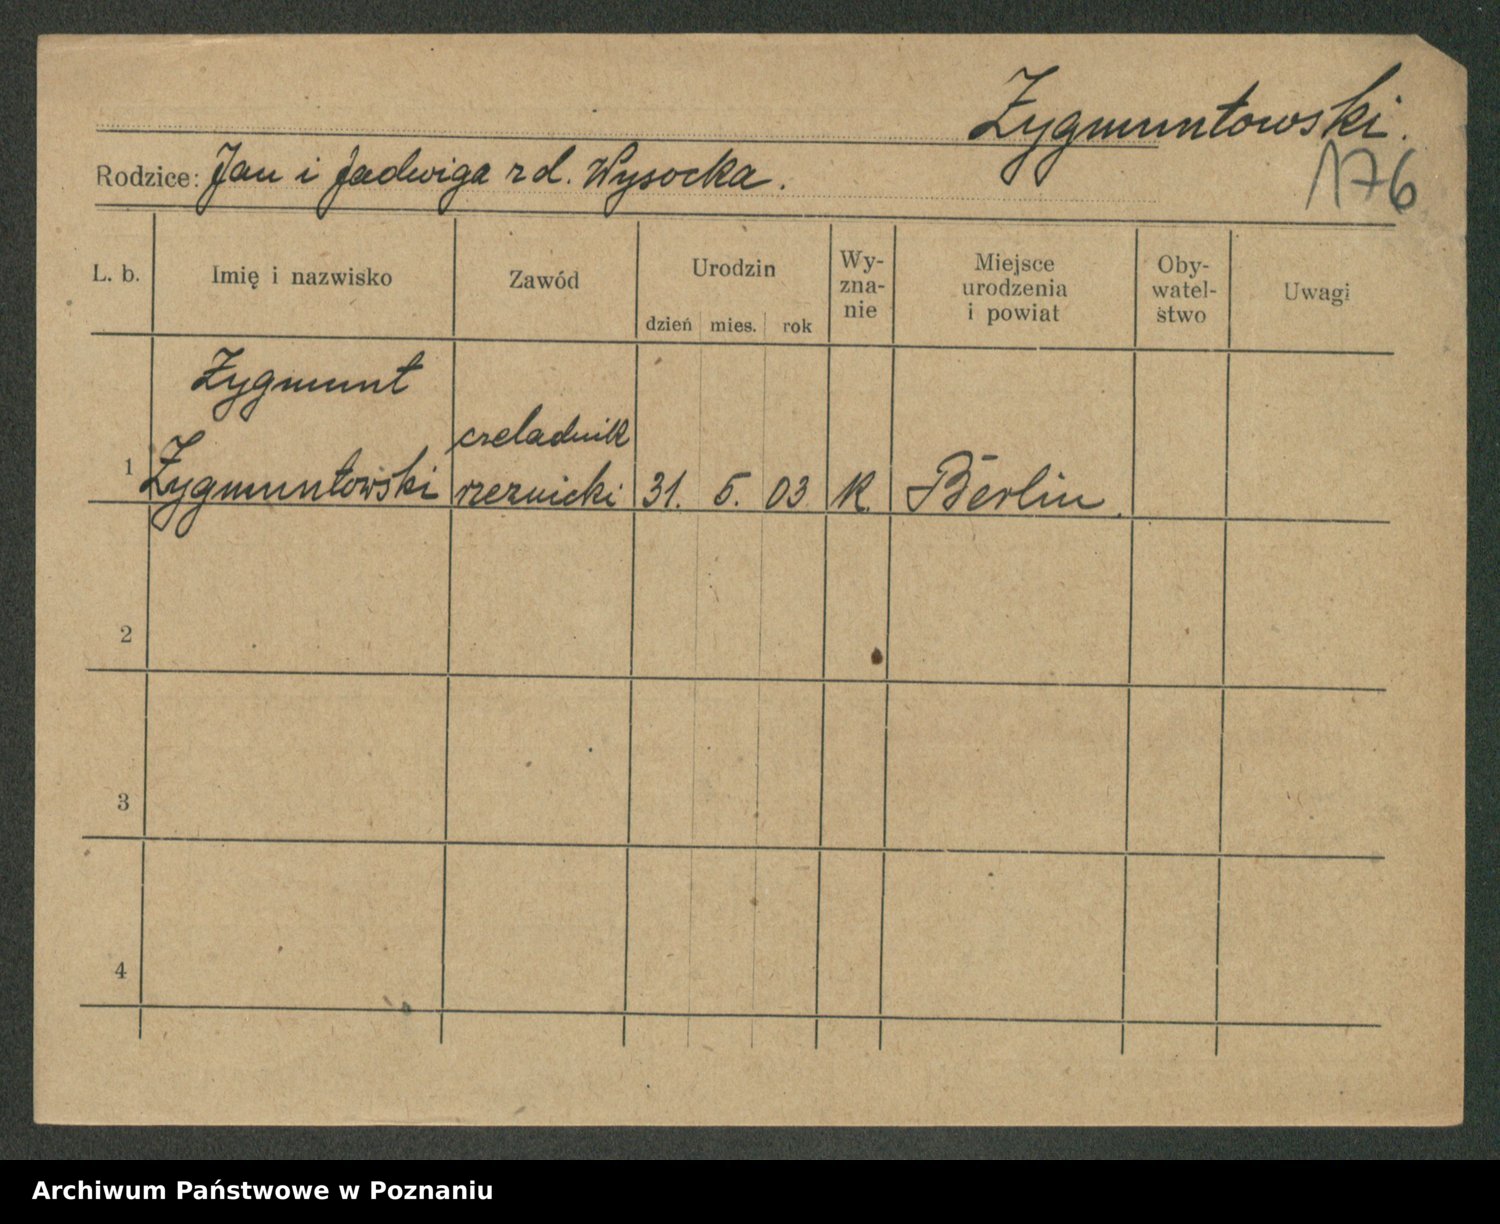 Zygmuntowski.
176
Rodzice: Jan i Jadwiga rd. Wysocka.
L. b.
Imię i nazwisko
Zawód
Urodzin
dzień mies. rok
Wy-
zna-
nie
Miejsce
urodzenia
i powiat
Oby-
watel-
stwo
Uwagi
Zygmunt
1 Zygmuntowski
czeladnik
rzeznicki
31. 5. 03 K. Berlin.
2
3
4
Archiwum Państwowe w Poznaniu